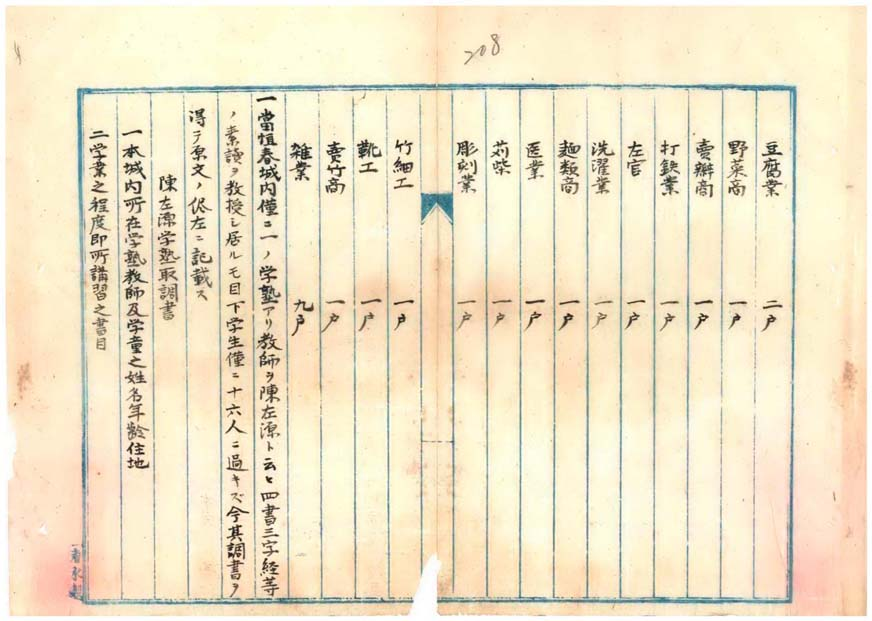 208
豆腐業 二戸
野菜商 一戸
賣雜商 一戸
打鉄業 一戸
左官 一戸
洗濯業 一戸
麺類商 一戸
医業 一戸
苅柴 一戸
彫刻業 一戸
竹細工 一戸
靴工 一戸
賣竹商 一戸
雑業 九戸
一當恒春城内僅ニ一ノ学塾アリ教師ヲ陳左源ト云ヒ四書三字経等
ノ素讀ヲ教授シ居ルモ目下学生僅ニ十六人ニ過キズ今其調書ヲ
得テ原文ノ侭左ニ記載ス
陳左源学塾取調書
一本城内所在学塾教師及学童之姓名年齢住地
二学業之程度即所講習之書目